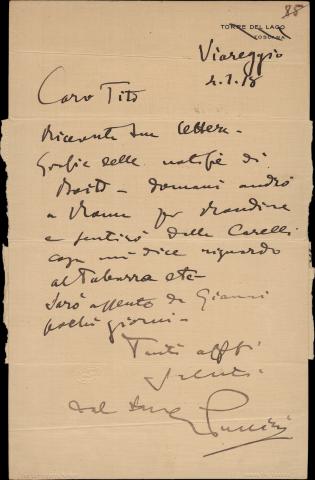 88
TORRE DEL LAGO
TOSCANA
Viareggio
2.1.18
Caro Tito
Ricevuta tua lettera -
Grazie delle notizie di
Boito - domani andrò
a Roma per Rondine
e sentirò dalla Carelli
cosa mi dice riguardo
al Tabarro etc -
Sarò assente da Giansi
pochi giorni -
Tanti aff.i
saluti
dal tuo Puccini